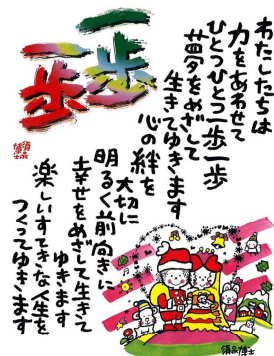 一歩
一歩
わたしたちは
力をあわせて
ひとつひとつ一歩一歩
夢をめざして
生きてゆきます
心の絆を
大切に
明るく前向きに
幸せをめざして生きて
ゆきます
楽しいすてきな人生を
つくってゆきます